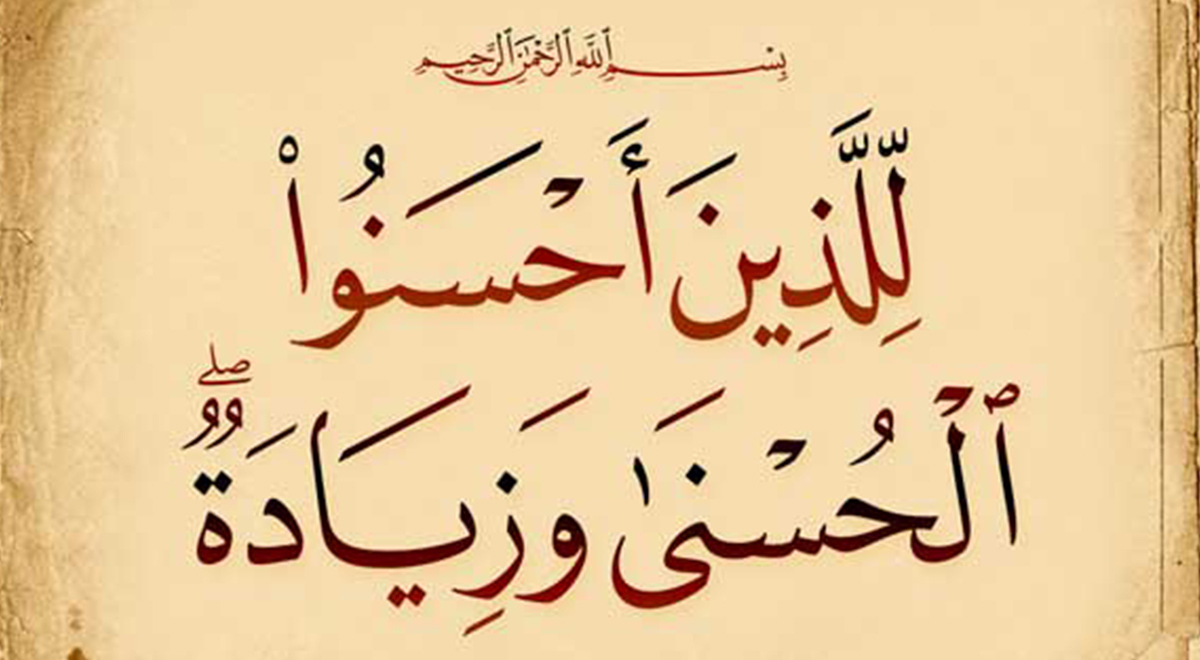 بِسْمِ ٱللَّهِ ٱلرَّحْمَٰنِ ٱلرَّحِيمِ
لِّلَّذِينَ أَحْسَنُوا۟
ٱلْحُسْنَىٰ وَزِيَادَةٌ ۖ